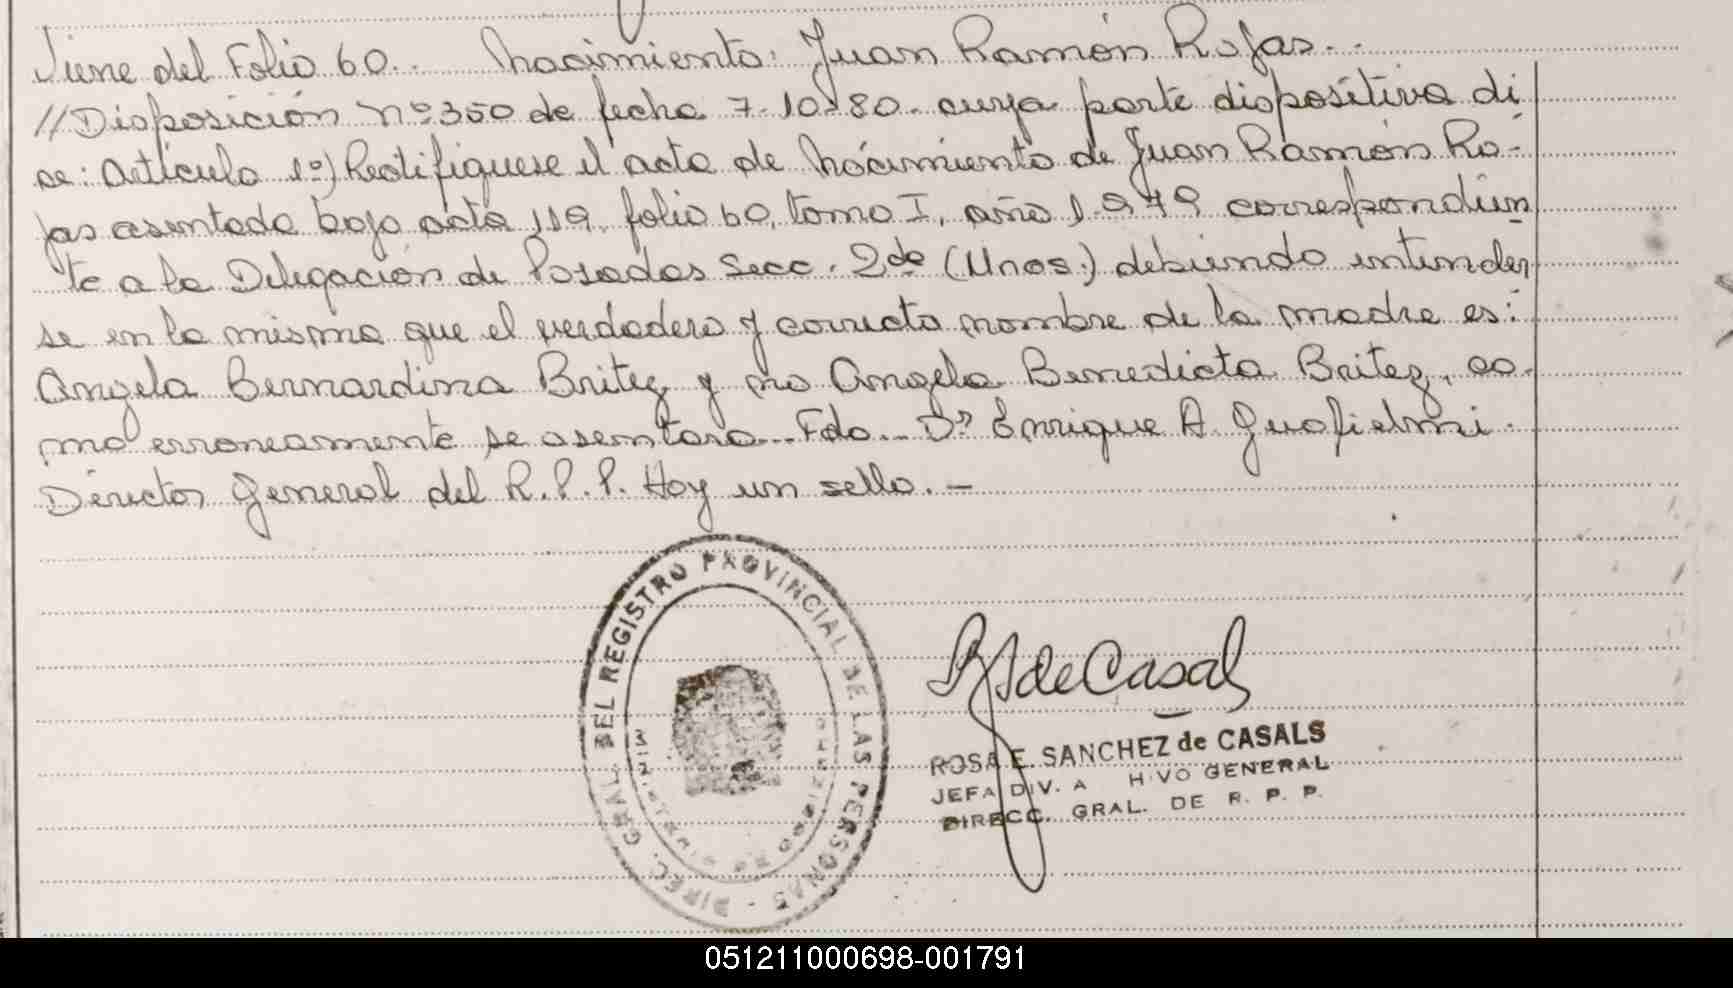 Viene del Folio 60.. Nacimiento: Juan Ramón Rojas..
//Disposición nº 350 de fecha 7-10-80. cuya parte dispositiva di
ce: Artículo 1º) Rectifiquese el acta de Nacimiento de Juan Ramón Ro-
jas asentada bajo acta 119, folio 60, tomo I, año 1.979 correspondien
te a la Delegación de Posadas Secc. 2da (Mnes.) debiendo entender
se en la misma que el verdadero y correcto nombre de la madre es:
Angela Bernardina Britez y no Angela Benedicta Britez, co-
mo erroneamente se asentara... Fdo... Dr Enrique A. Guofielmi.
Director General del R.P.P. Hay un sello. -
DIREC. GRAL. DEL REGISTRO PROVINCIAL DE LAS PERSONAS
de Casal
ROSA E. SANCHEZ de CASALS
JEFA DIV. A HIVO GENERAL
DIRECC. GRAL. DE R. P. P.
051211000698-001791